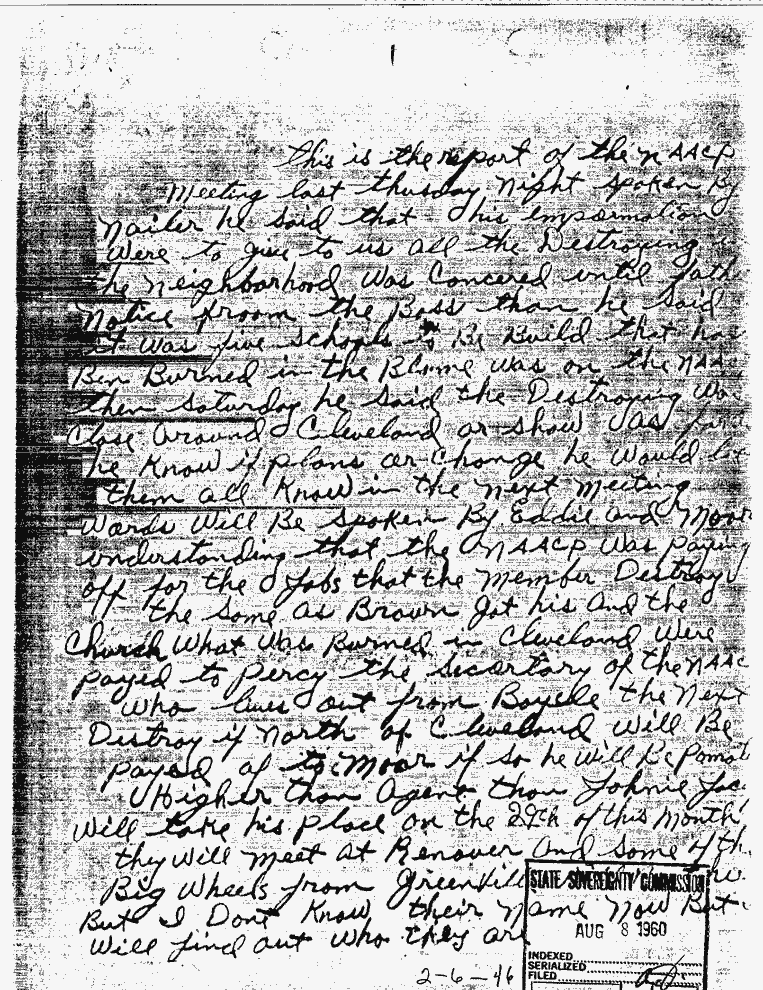 This is the report of the NAACP
Meeting last thusday Night spoken By
Nailer he Said that this impormation
Were to give to us all the Destroying
the Neighborhood Was Concered until
Notice froom the Boss than he Said
it was five Schools to Be Build that has
Ben Burned in the Blame was on the NAA
then Saturday he Said the Destroying
Close around Cleveland ar show was
he Know if plans ar Change he would let
them all Know in the next Meeting
Words Will Be Spoken By Eddie and Moor
understanding that the NAACP Was paying
off for the Jobs that the Member Destroy
the Same as Brown got his and the
Church What Was Burned in Cleveland Were
payed to Percy the Secartary of the NAAC
Who lives out from Boyele the Next
Distroy if North of Cleveland Will Be
payed of to Moor if so he Will Be
Higher than Agent than Johnie
Will take his place on the 29th of this Month
they Will Meet at Renover and Some of th
Big Wheels from Greenvill
But I Dont Know their Name Now But
Will find out who they are
STATE SOVEREIGNTY COMMISSION
AUG 8 1960
INDEXED
SERIALIZED
FILED
2-6-46